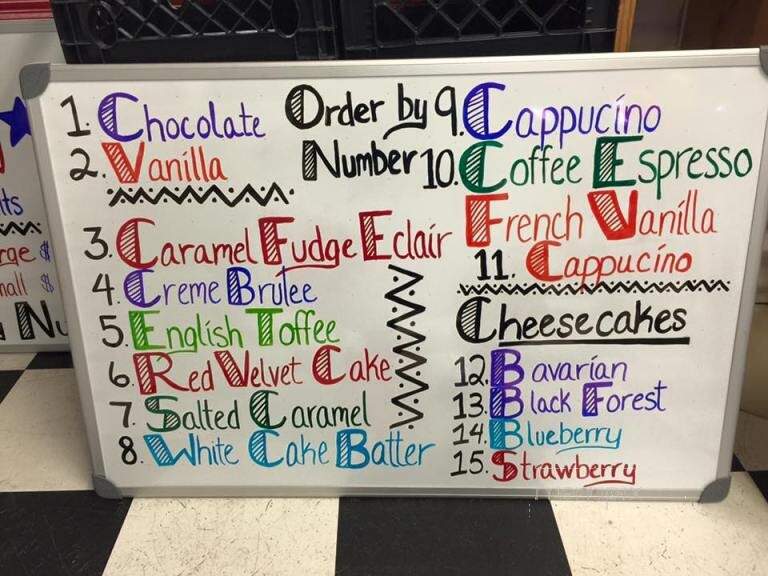 1. Chocolate
2. Vanilla
Order by
Number
3. Caramel Fudge Eclair
4. Creme Brulee
5. English Toffee
6. Red Velvet Cake
7. Salted Caramel
8. White Cake Batter
9. Cappucino
10. Coffee Espresso
French Vanilla
11. Cappucino
Cheesecakes
12. Bavarian
13. Black Forest
14. Blueberry
15. Strawberry